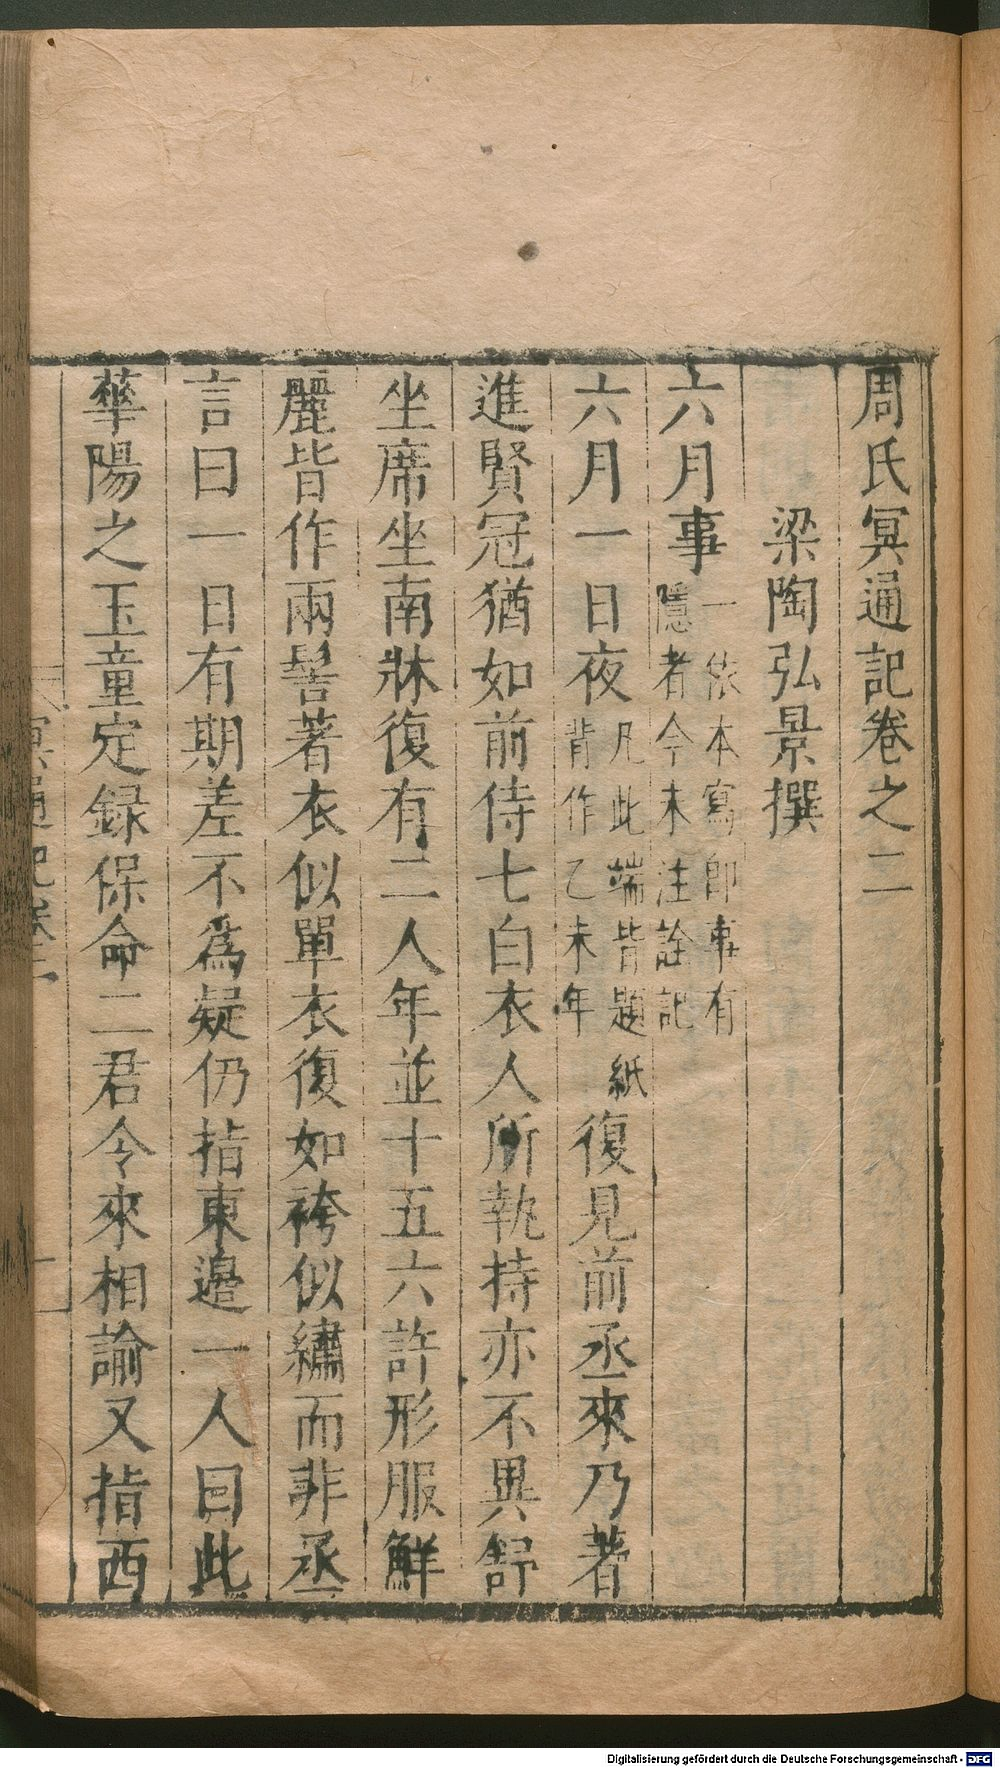 周氏冥通記卷之二
梁陶弘景撰
六月事一依本寫即事有隱者今未注詮記
六月一日夜凡此端皆題紙背作乙未年復見前丞來乃著
進賢冠猶如前侍七白衣人所執持亦不異舒
坐席坐南牀復有二人年並十五六許形服鮮
麗皆作兩髻著衣似單衣復如袴似繡而非丞
言曰一日有期差不爲疑仍指東邉一人曰此
華陽之玉童定録保命二君令來相諭又指西
冥通記卷二
一
Digitalisierung gefördert durch die Deutsche Forschungsgemeinschaft - DFG